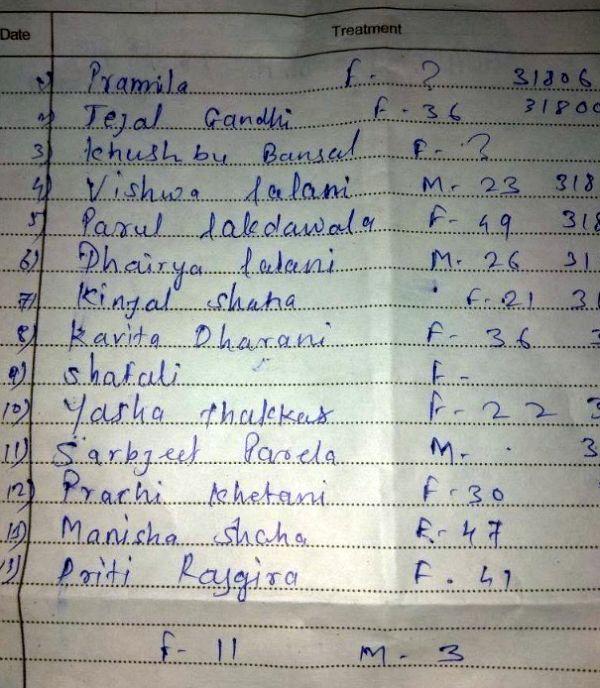 Date Treatment
1) Pramila F - ? 31806
2) Tejal Gandhi F - 36 31800
3) Khushbu Bansal F - ?
4) Vishwa lalani M - 23 318
5) Parul lakdawala F - 49 318
6) Dhairya lalani M - 26 31
7) Kinjal Shaha F - 21 31
8) Kavita Dharani F - 36 3
9) Shafali F -
10) Yasha Thakkar F - 22 3
11) Sarbjeet M - 3
12) Prachi Khetani F - 30
13) Manisha Shaha F - 47
13) Priti Rajgira F - 41
F - 11 M - 3